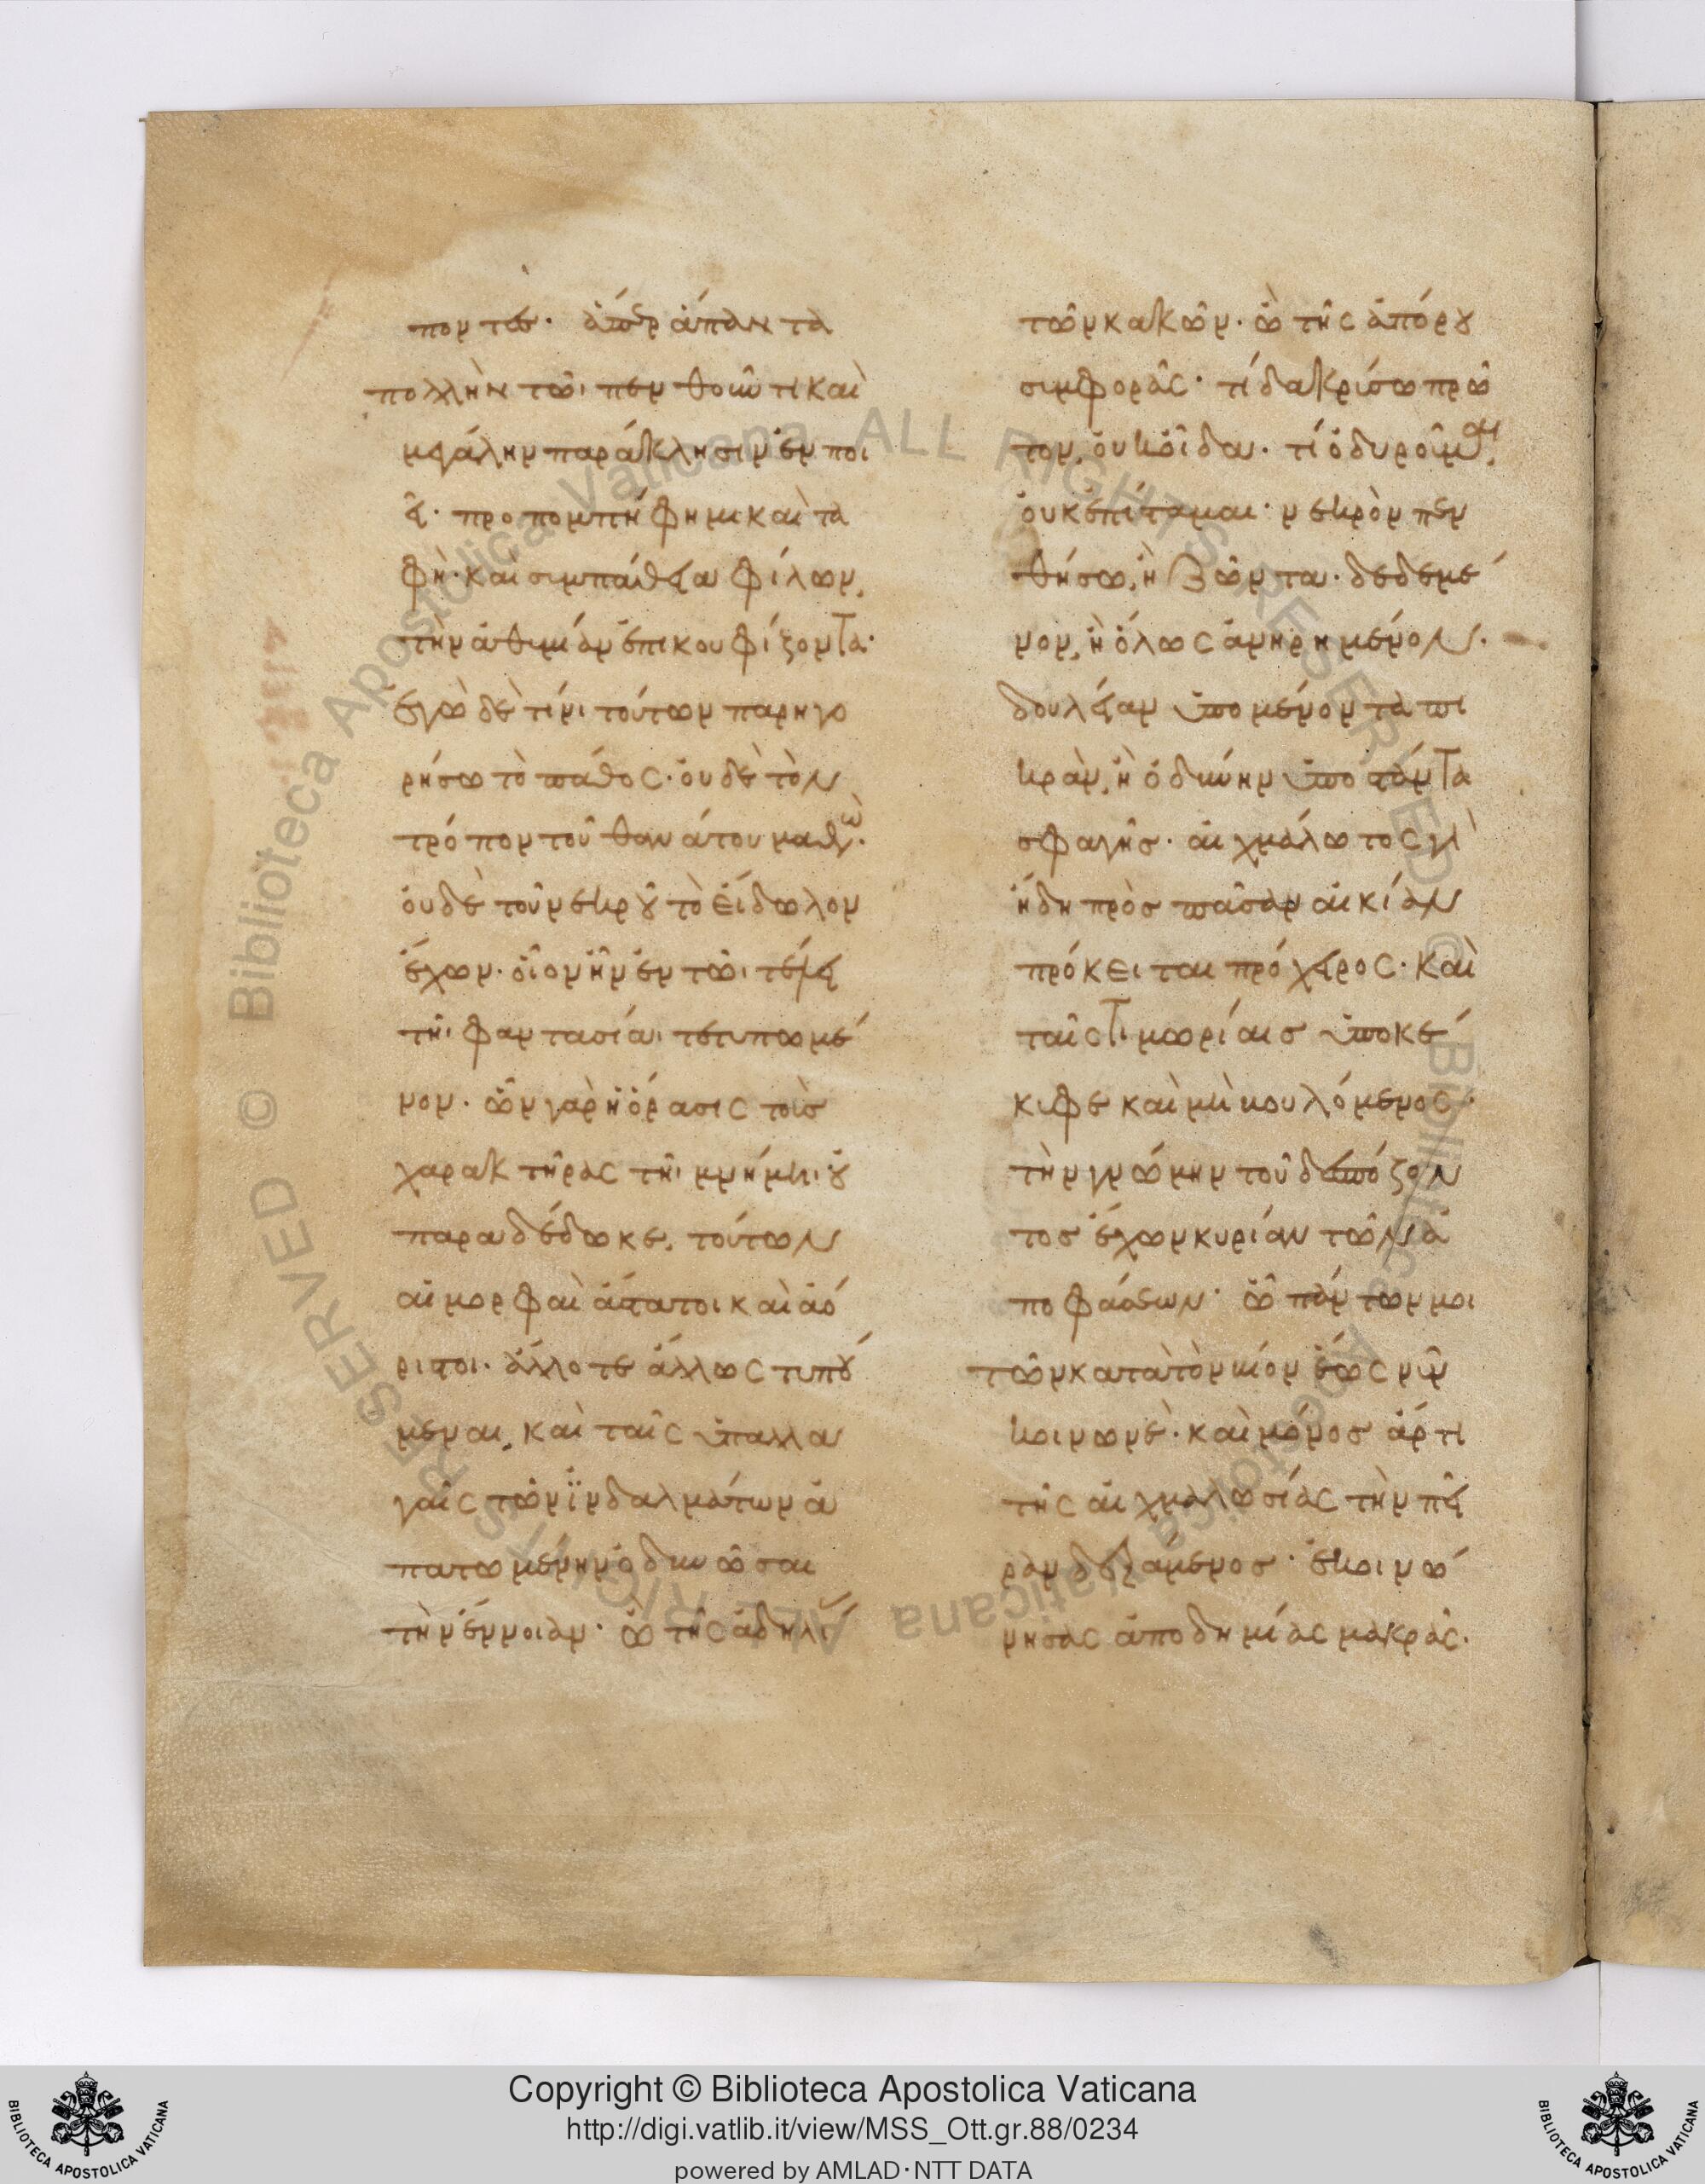 ποντες· ἅπερ ἅπαντα
πολλὴν τῶι πενθοῦντι καὶ
μεγάλην παράκλησιν ἐμποι
εῖ· προπομπή φημι καὶ τα
φὴ· καὶ συμπάθεια φίλων,
τὴν ἀθυμίαν ἐπικουφίζοντα·
ἐγὼ δὲ τίνι τούτων παρηγο
ρήσω τὸ πάθος· οὐδὲ τὸν
τρόπον τοῦ θανάτου μαθὼν·
οὐδὲ τοῦ νεκροῦ τὸ εἴδωλον
ἔχων· οἷον ἦν ἐν τῶι τέλει
τῆι φαντασίαι τετυπωμέ
νον· ὧν γὰρ ἡ ὅρασις τοὺς
χαρακτῆρας τῆι μνήμηι οὐ
παραδέδωκε, τούτων
αἱ μορφαὶ ἄστατοι καὶ ἀό
ριστοι· ἄλλοτε ἄλλως τυπού
μεναι, καὶ ταῖς ὑπαλλα
γαῖς τῶν ἰνδαλμάτων ἀ
πατωμένην ὀδυνῶσαι
τὴν ἔννοιαν· ὢ τῆς ἀδηλί
τῶν κακῶν· ὢ τῆς ἀπόρου
συμφορᾶς· τί δακρύσω πρῶ
τον, οὐκ οἶδα· τί ὀδυροῦμαι,
οὐκ ἐπίσταμαι· νεκρὸν πεν
θήσω, ἢ ζῶντα· δεδεμέ
νον, ἢ ὅλως ἀνηρημένον·
δουλείαν ὑπομένοντα πι
κρὰν, ἢ ὀδύνην ὑποστάντα
σφαγῆς· αἰχμάλωτος γὰρ
ἤδη πρὸς πᾶσαν αἰκίαν
πρόκειται πρόχειρος· καὶ
ταῖς τιμωρίαις ὑποκέ
κυφε καὶ μὴ βουλόμενος·
τὴν γνώμην τοῦ δεσπόζον
τος ἔχων κυρίαν τῶν ἀ
ποφάσεων· ὢ πάντων μοι
τῶν κατὰ τὸν βίον ἕως νῦν
κοινωνὲ· καὶ μόνος ἄρτι
τῆς αἰχμαλωσίας τὴν πεῖ
ραν δεξάμενος· ἐκοινώ
νησας ἀποδημίας μακρᾶς·
Copyright © Biblioteca Apostolica Vaticana
http://digi.vatlib.it/view/MSS_Ott.gr.88/0234
powered by AMLAD·NTT DATA